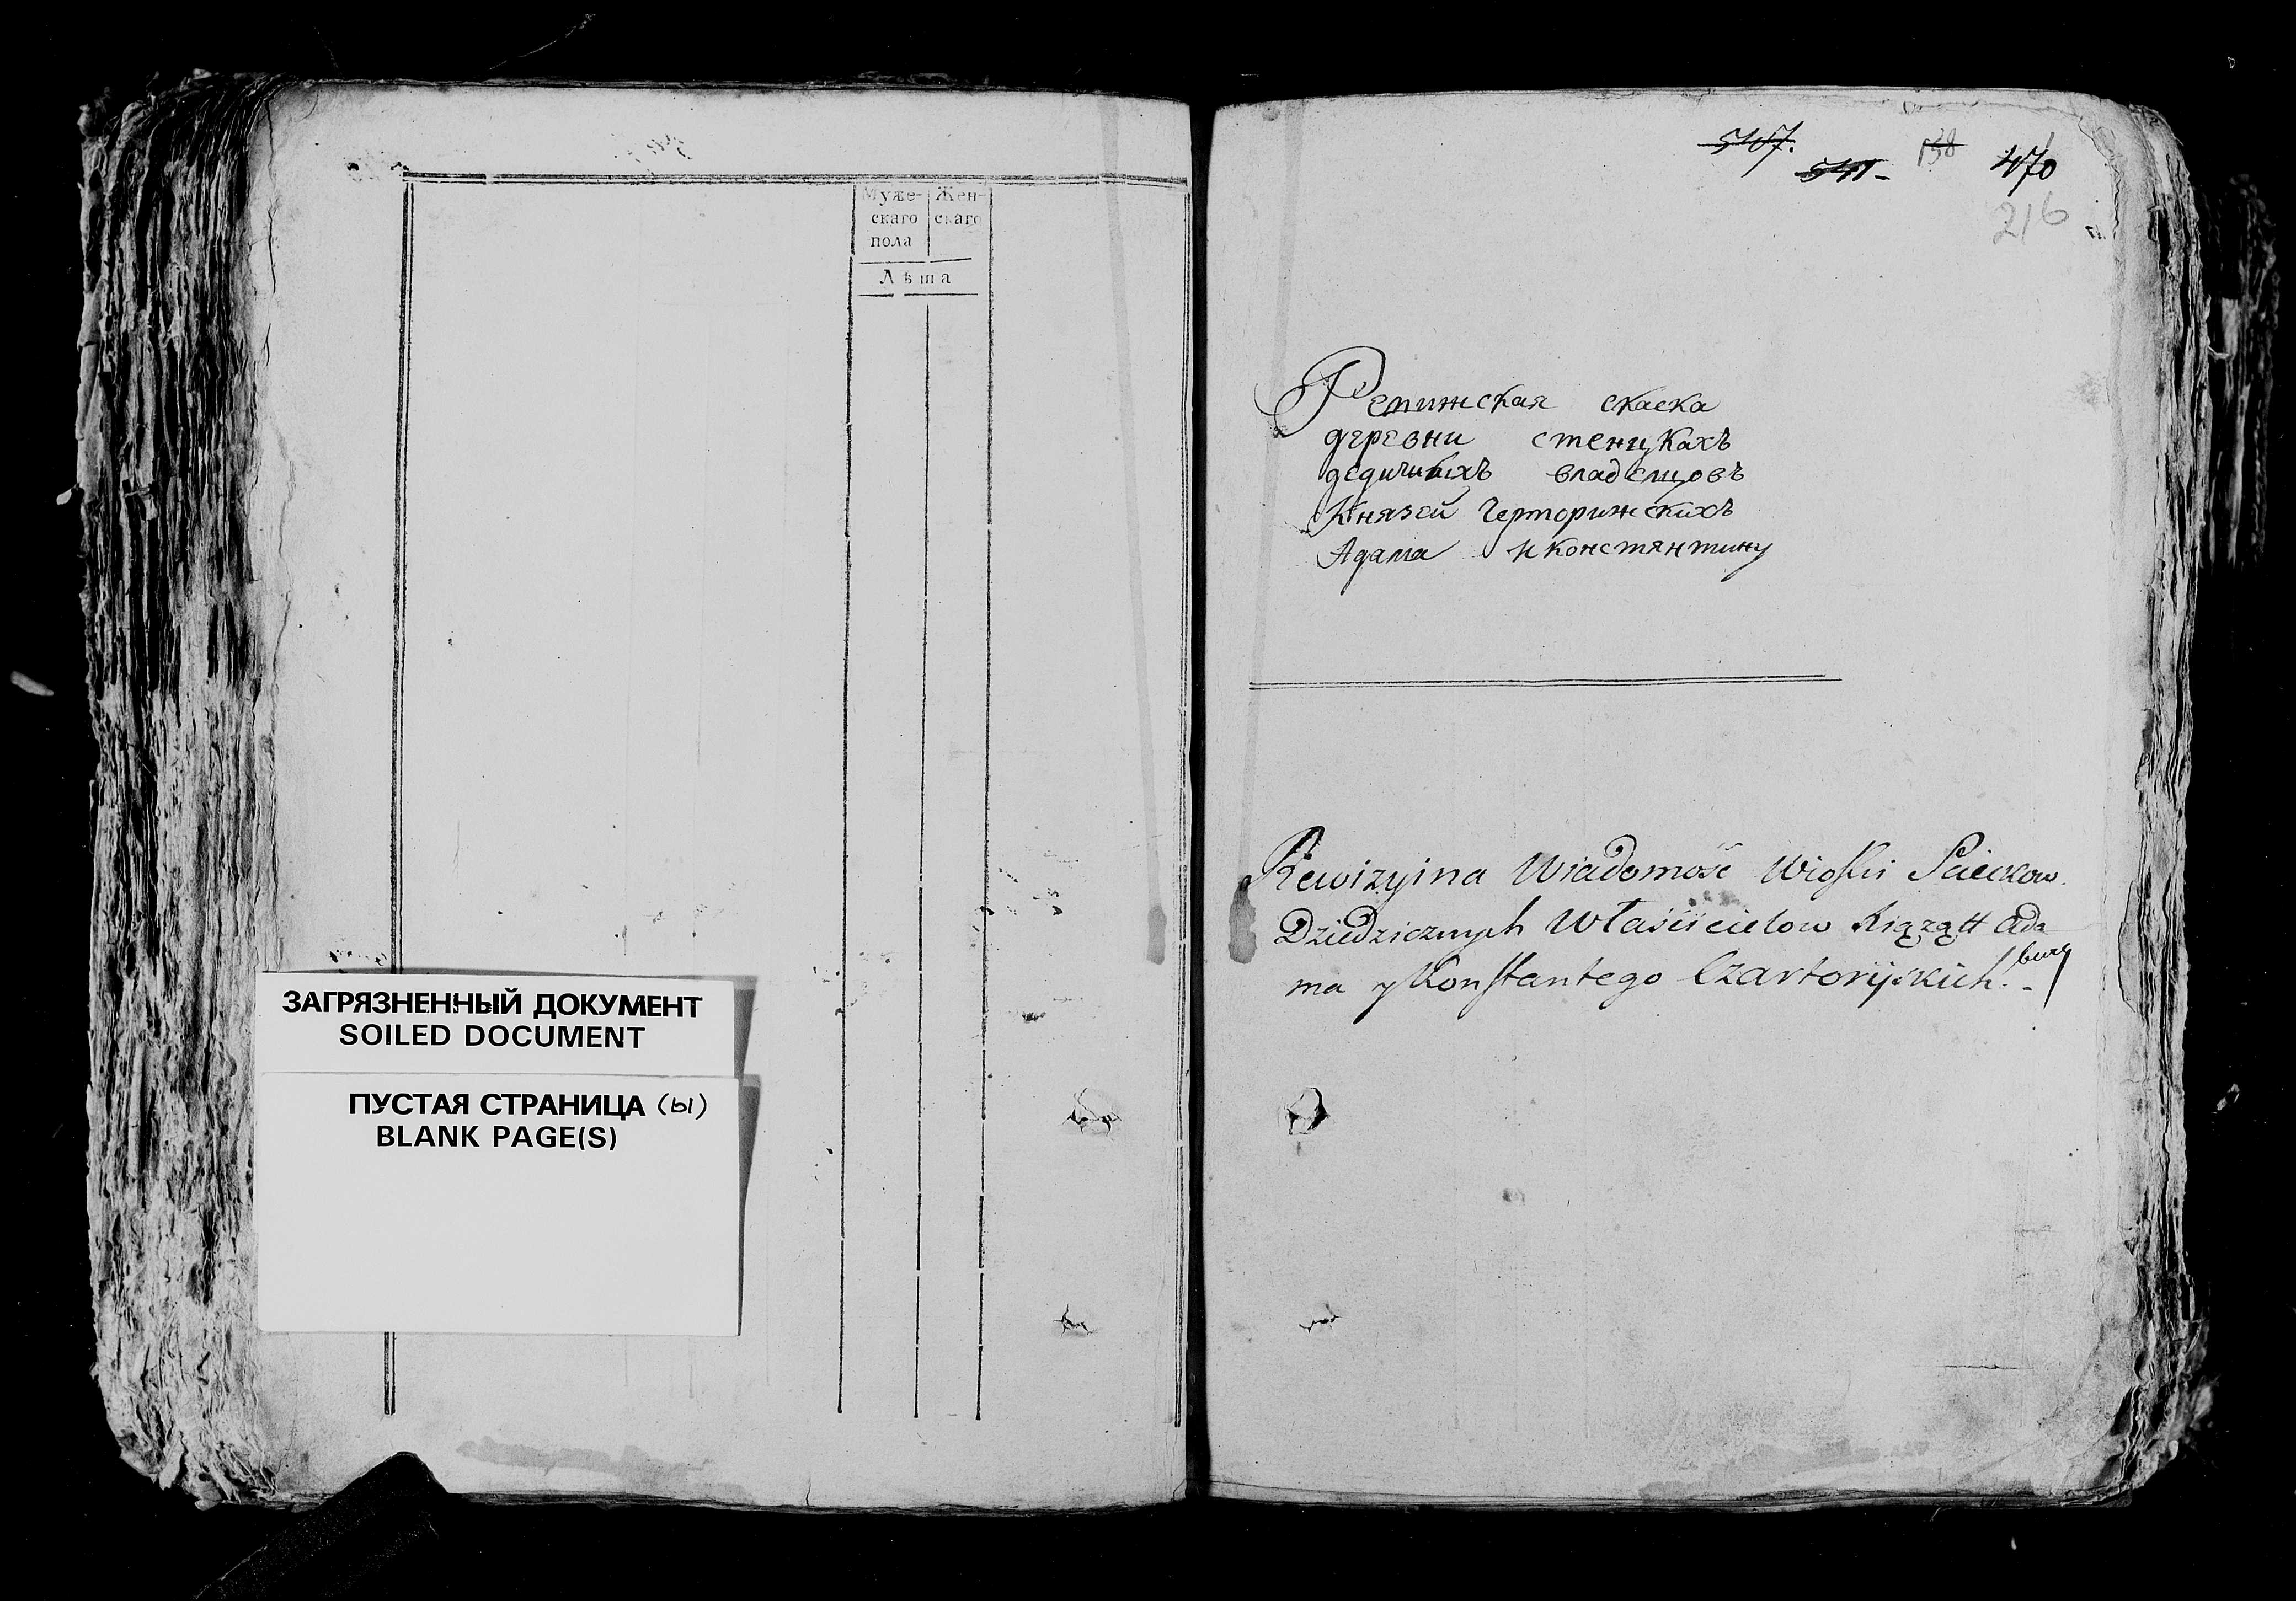 Муже-
скаго
пола
Жен-
скаго
Лѣта
ЗАГРЯЗНЕННЫЙ ДОКУМЕНТ
SOILED DOCUMENT
ПУСТАЯ СТРАНИЦА (ы)
BLANK PAGE(S)
541-
138
470
216
скаска
деревни стенцкахъ
владелцовъ
Князей Черторижскихъ
Адама и константину
Rewizyina Wiadomość Wioski
Dziedzicznych Właścicielow Xiążątt Ada
ma y Konstantego Czartoryskich.